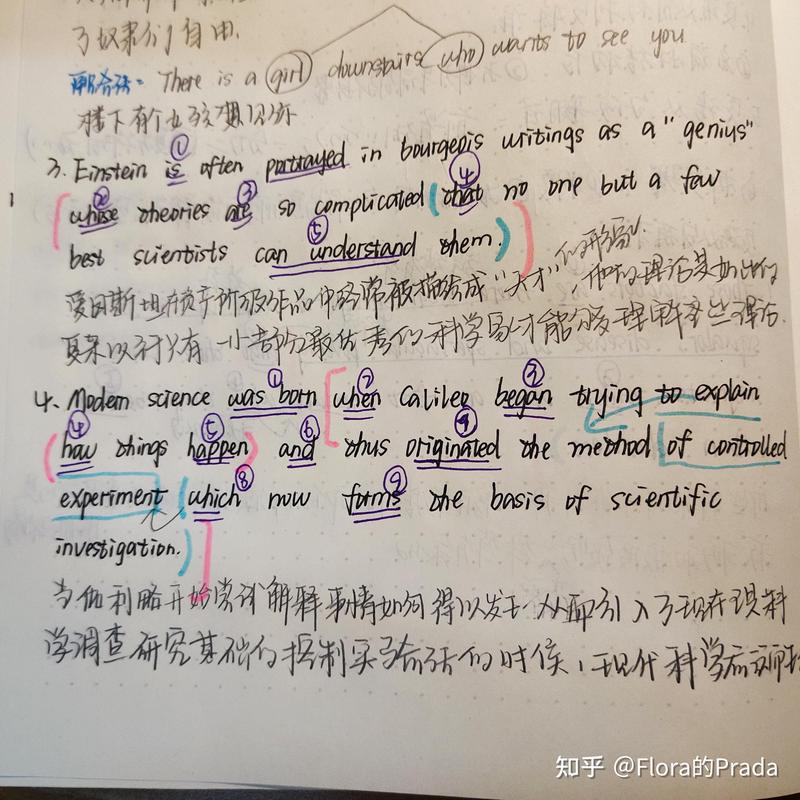 了奴隶们自由.
There is a girl downstairs who wants to see you
楼下有个女孩想见你
① ④
3. Einstein is often portrayed in bourgeois writings as a "genius"
② ③
whose theories are so complicated (that no one but a few
⑤
best scientists can understand them.)
爱因斯坦在资产阶级作品中经常被描绘成"天才"的形象, 他的理论其如此的
复杂以致于只有一小部分最优秀的科学家才能够理解这些理论.
① ② ③
4. Modern science was born [when Galileo began trying to explain
④ ⑤ ⑥ ⑦
(how things happen) and thus originated the method [of controlled
⑧ ⑨
experiment (which now forms the basis of scientific
investigation.)]
当伽利略开始尝试解释事情如何得以发生 从而引入了现在现科
学调查研究基础的控制实验方法的时候, 现代科学应
知乎 @Flora的Prada